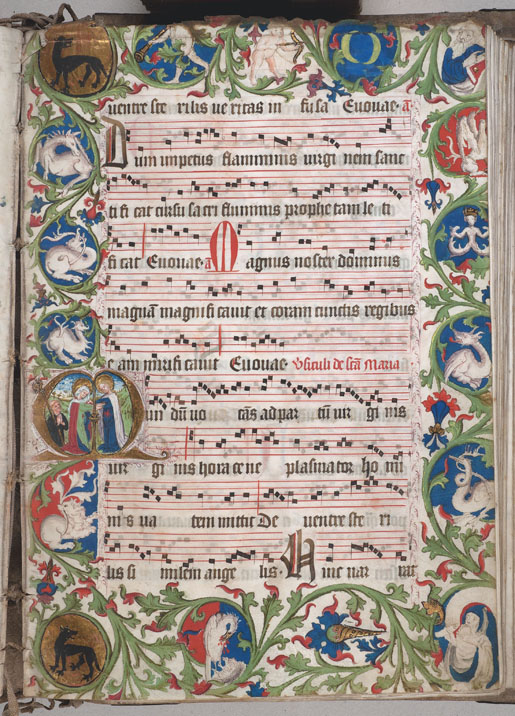 ventre ste rilis veritas in fusa Euouae a
Dum impetus flaminius virgi nem sanc
ti fi cat cursu sacri fluminis prophetam leti
fi cat Euouae a Magnus noster dominus
magnam magnificavit et coram cunctis regibus
eam mirificavit Euouae Vsiculi de sca Maria
um dm vo cas ad par tu vir gi nis
vir gi nis hora ce ne plasmator ho mi
nis va tem mittit De ventre ste ri
lis si milem ange lis Hunc nar rat